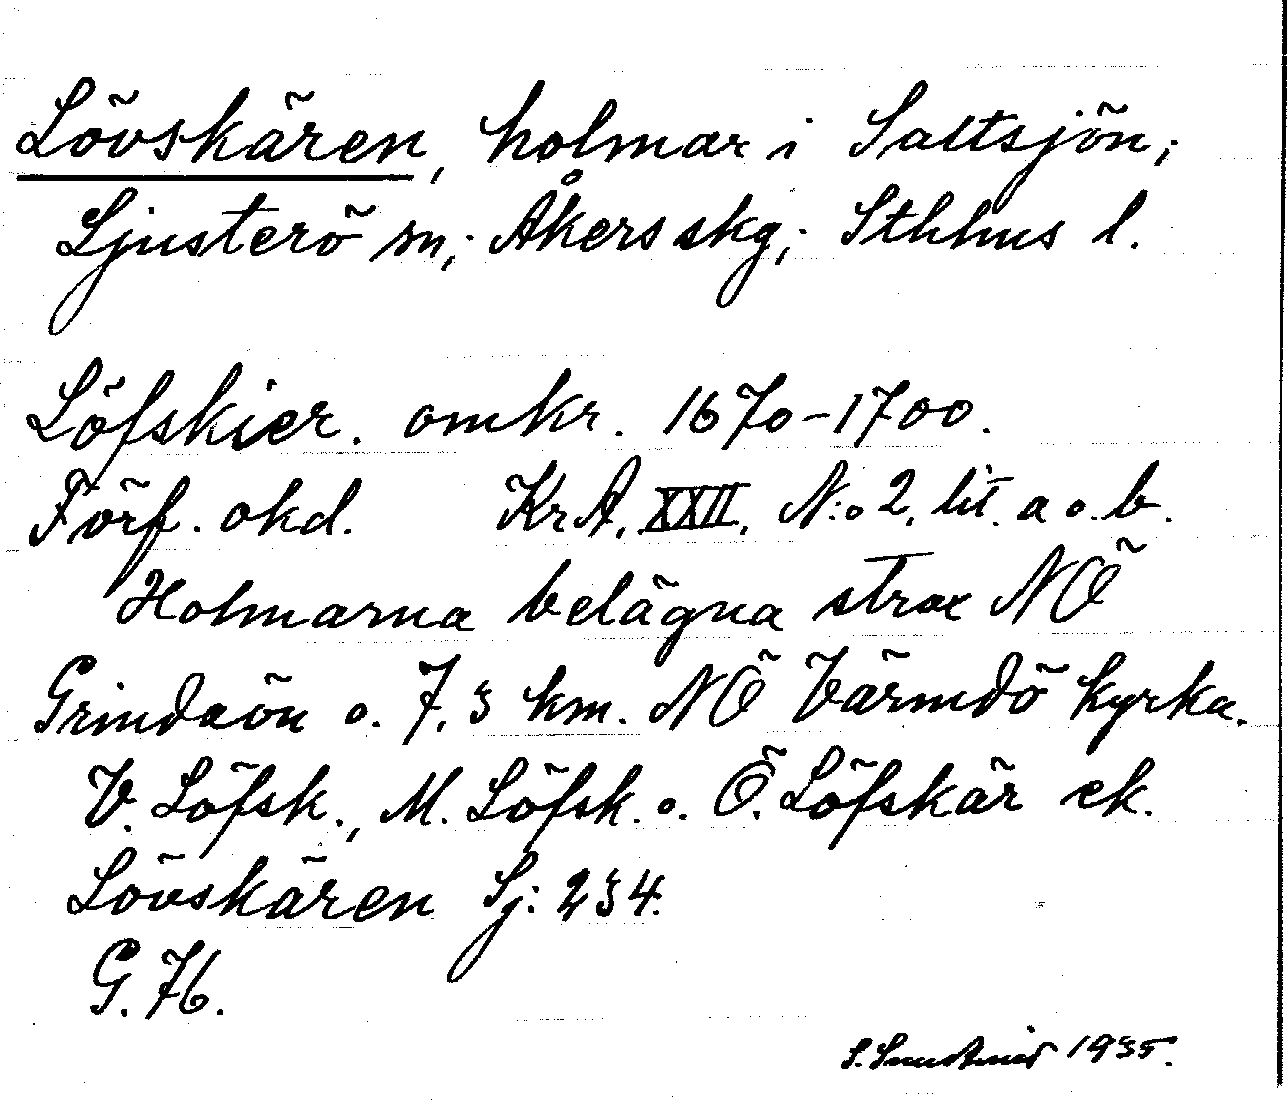 Lövskären, holmar i Saltsjön;
Ljusterö sn; Åkers skg; Sthhus l.
Löfskier. omkr. 1670-1700.
Förf. okd. KrA. XXII. N:o 2. lit. a o. b.
Holmarna belägna strax NÖ
Grindaön o. 7,3 km. NÖ Värmdö kyrka.
V. Löfsk., M. Löfsk. o. Ö. Löfskär ek.
Lövskären Sj: 234.
G. 76.
S. 1935.